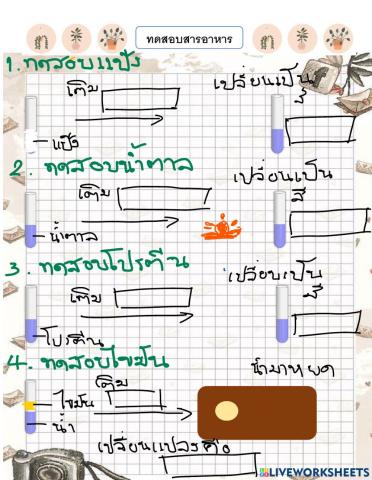 ทดสอบสารอาหาร
1. ทดสอบแป้ง
เติม
เปลี่ยนเป็น
สี
แป้ง
2. ทดสอบน้ำตาล
เติม
เปลี่ยนเป็น
สี
น้ำตาล
3. ทดสอบโปรตีน
เติม
เปลี่ยนเป็น
สี
โปรตีน
4. ทดสอบไขมัน
เติม
น้ำมาหยด
ไขมัน
น้ำ
เปลี่ยนแปลงคือ
LIVEWORKSHEETS